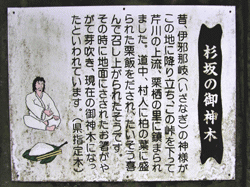 杉坂の御神木
昔、伊邪那岐(いざなぎ)の神様が
この地に降り立ち、この峠を下って
芹川の上流、栗栖の里に鎮まられ
ました。道中、村人に柏の葉に盛
られた栗飯をだされ、たいそう喜
んで召し上がられたそうです。
その時に地面にさされたお箸がや
がて芽吹き、現在の御神木になっ
たといわれています。(県指定木)